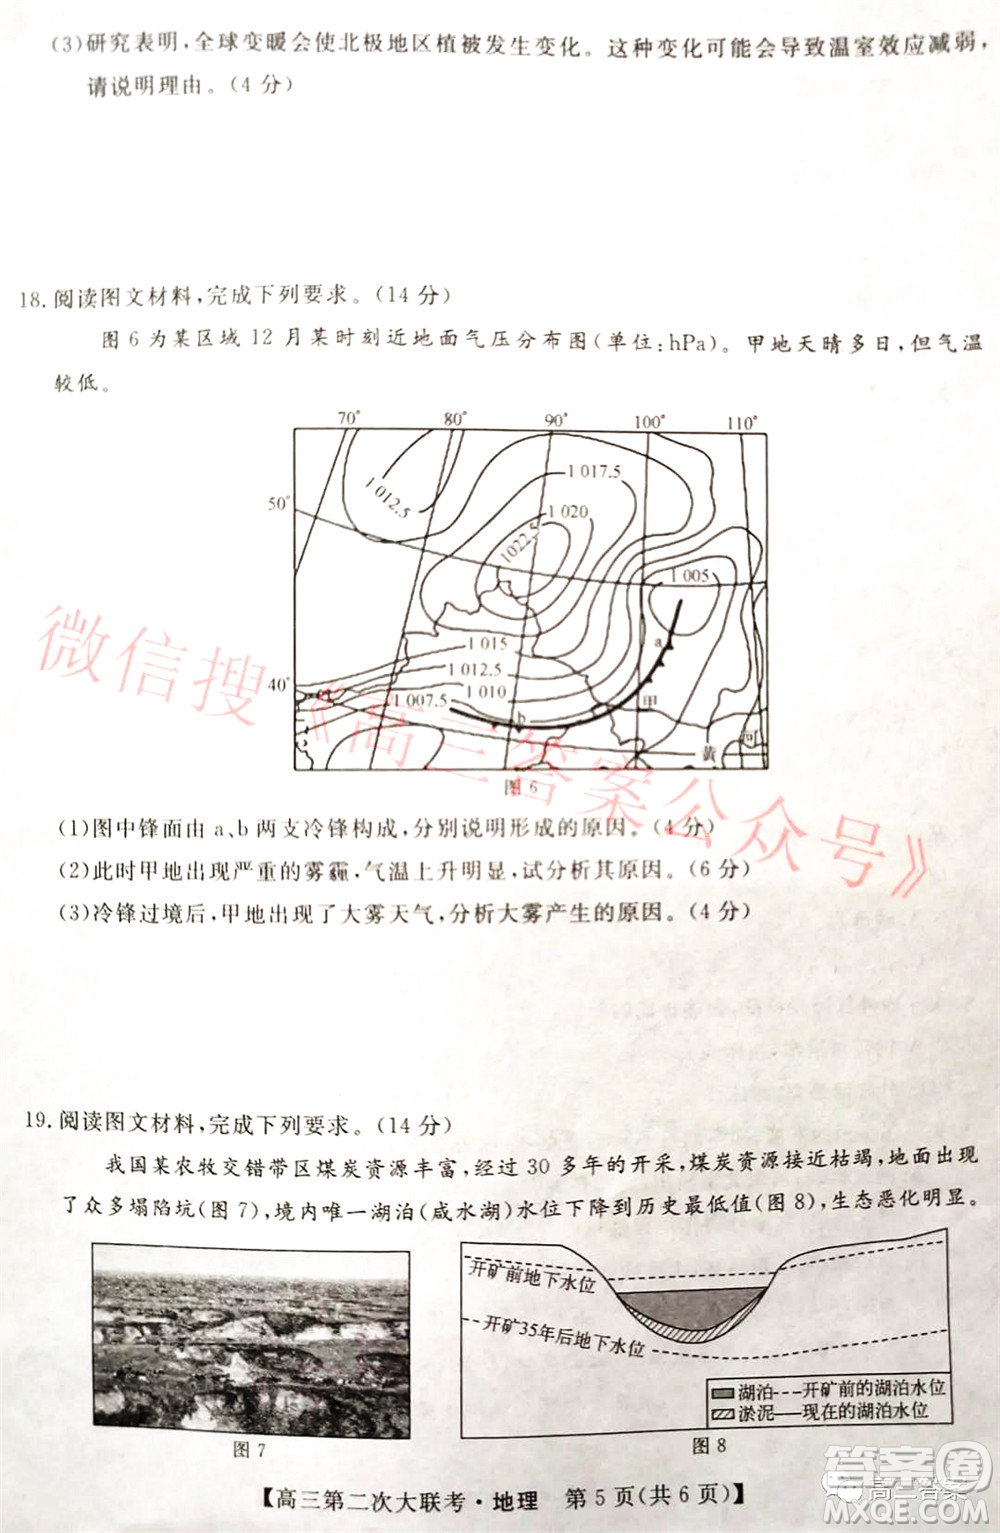 (3)研究表明,全球变暖会使北极地区植被发生变化。这种变化可能会导致温室效应减弱,
请说明理由。(4 分)
18.阅读图文材料,完成下列要求。(14 分)
图 6 为某区域 12 月某时刻近地面气压分布图(单位:hPa)。甲地天晴多日,但气温
较低。
70° 80° 90° 100° 110°
50°
40°
1 012.5
1 017.5
1 020
1 022.5
1 005
1 015
1 012.5
1 010
1 007.5
a
b
甲
黄
河
图 6
(1)图中锋面由 a、b 两支冷锋构成,分别说明形成的原因。(4 分)
(2)此时甲地出现严重的雾霾,气温上升明显,试分析其原因。(6 分)
(3)冷锋过境后,甲地出现了大雾天气,分析大雾产生的原因。(4 分)
微信搜《高三答案公众号》
19.阅读图文材料,完成下列要求。(14 分)
我国某农牧交错带区煤炭资源丰富,经过 30 多年的开采,煤炭资源接近枯竭,地面出现
了众多塌陷坑(图 7),境内唯一湖泊(咸水湖)水位下降到历史最低值(图 8),生态恶化明显。
开矿前地下水位
开矿35年后地下水位
湖泊 开矿前的湖泊水位
淤泥 现在的湖泊水位
图 7
图 8
【高三第二次大联考·地理 第 5 页(共 6 页)】
答案圈
高三答案
MXQE.COM